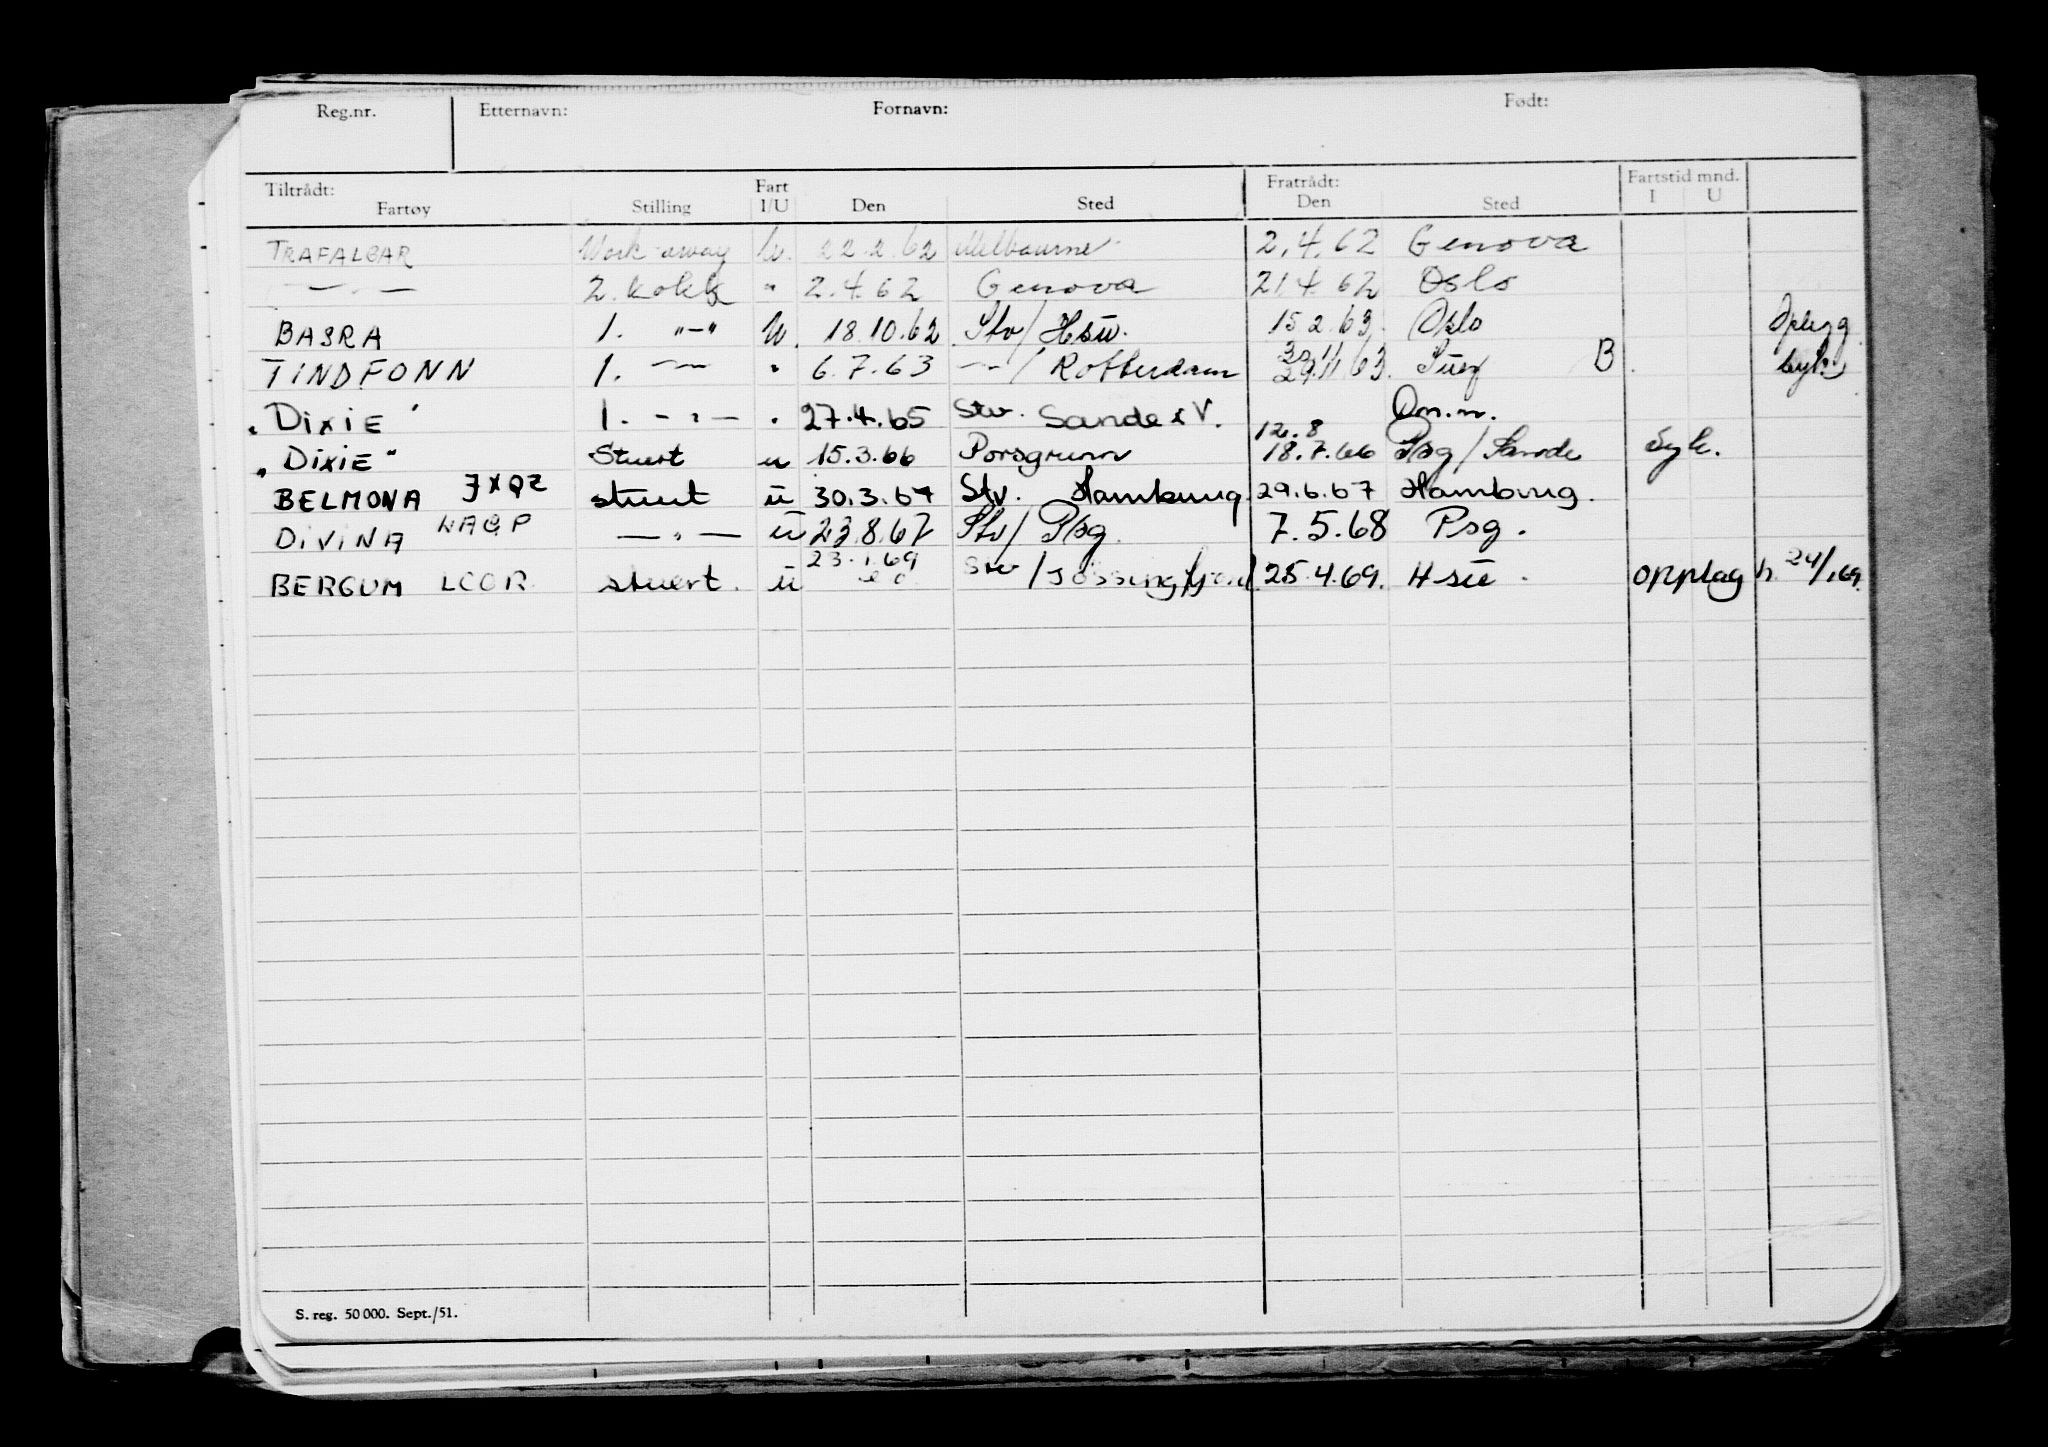 Reg.nr. Etternavn: Fornavn: Født:
Tiltrådt: Fart Fratrådt: Fartstid mnd.
Fartøy Stilling I/U Den Sted Den Sted I U
TRAFALGAR Work-away U. 22.2.62 Melbourne 2.4.62 Genova
— " — 2. kokk " 2.4.62 Genova 21.4.62 Oslo
BASRA 1. "—" U. 18.10.62 Stv/Hsū. 15.2.63. Oslo
TINDFONN 1. —"— " 6.7.63 —"—/Rotterdam 29.11.63. Suez B syk.
"DIXIE" 1. — " — " 27.4.65 Stv. Sande i V. 12.8
"DIXIE" Stuert u 15.3.66 Porsgrunn 18.7.66 Psg/Sande Syk.
BELMONA JXQZ stuert ū 30.3.67 Stv. Hamburg 29.6.67 Hamburg.
DIVINA LAGP — " — ū 23.8.67 Stv/Psg. 7.5.68 Psg.
23.1.69
BERGUM LCOR stuert. ū Stv/Jøssingfjord 25.4.69. Hsū. opplag h. 24/1 69.
S. reg. 50 000. Sept./51.